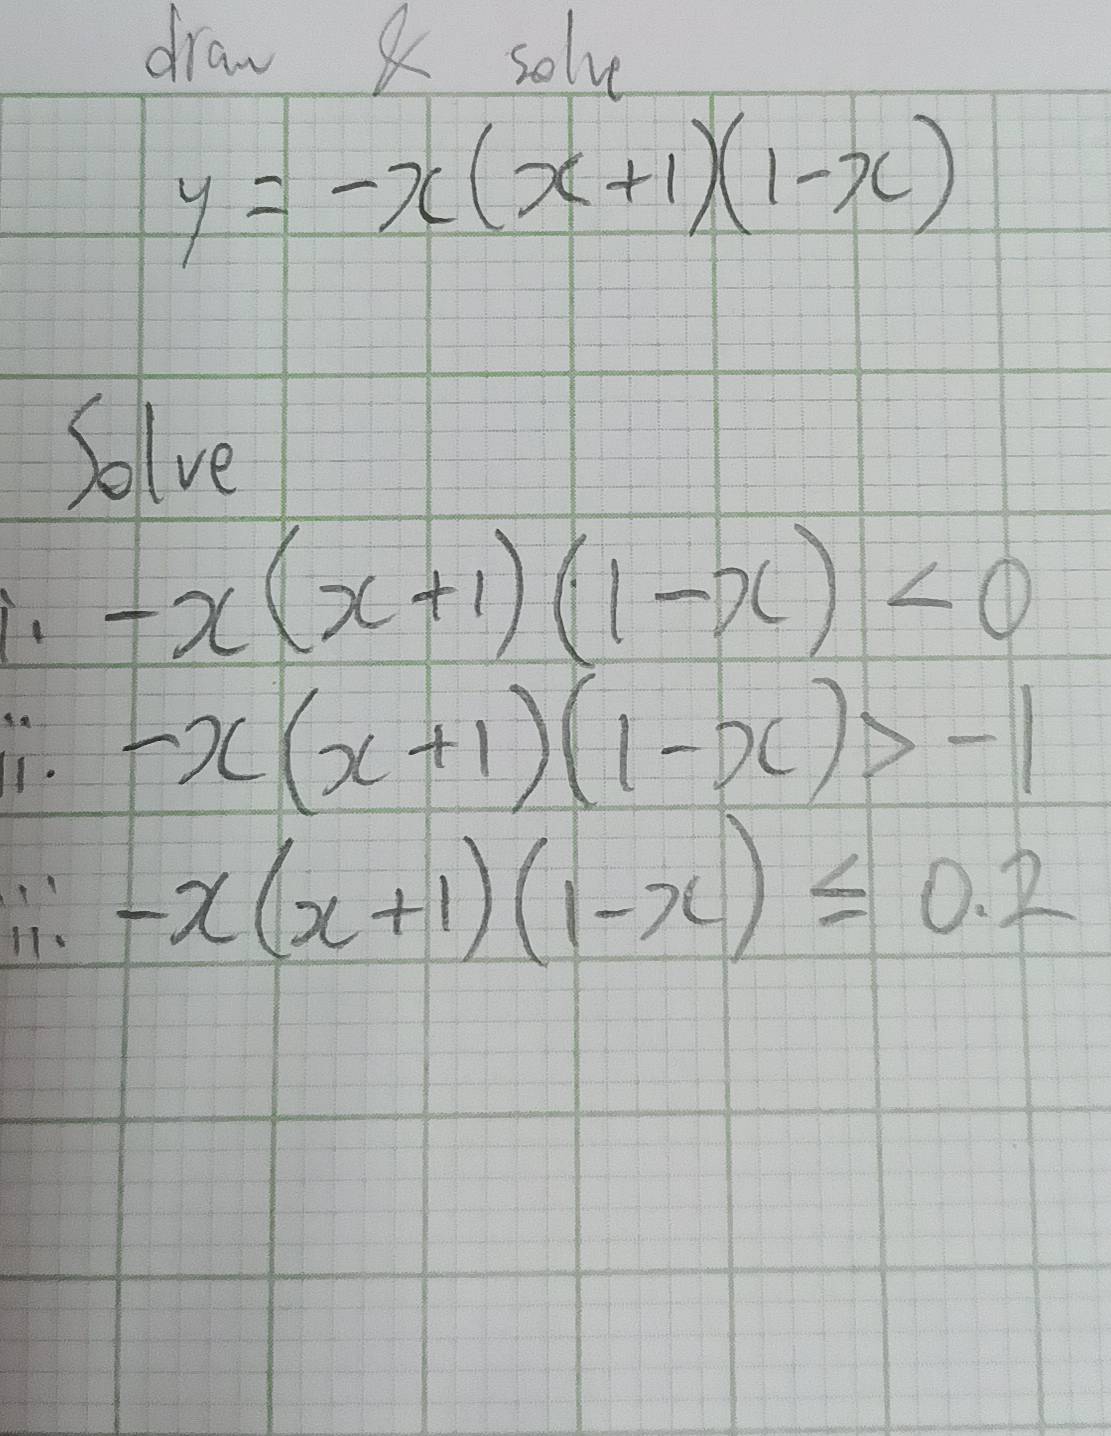 draw & solve
y = -x(x+1)(1-x)
Solve
i. -x(x+1)(1-x) < 0
ii. -x(x+1)(1-x) > -1
iii. -x(x+1)(1-x) ≤ 0.2